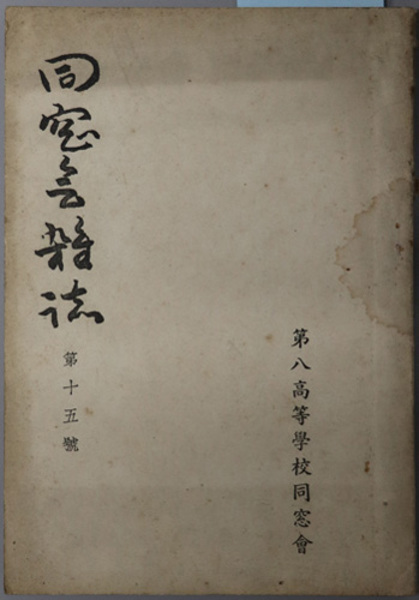 第八高等學校同窓會
同窓会雑誌
第十五號